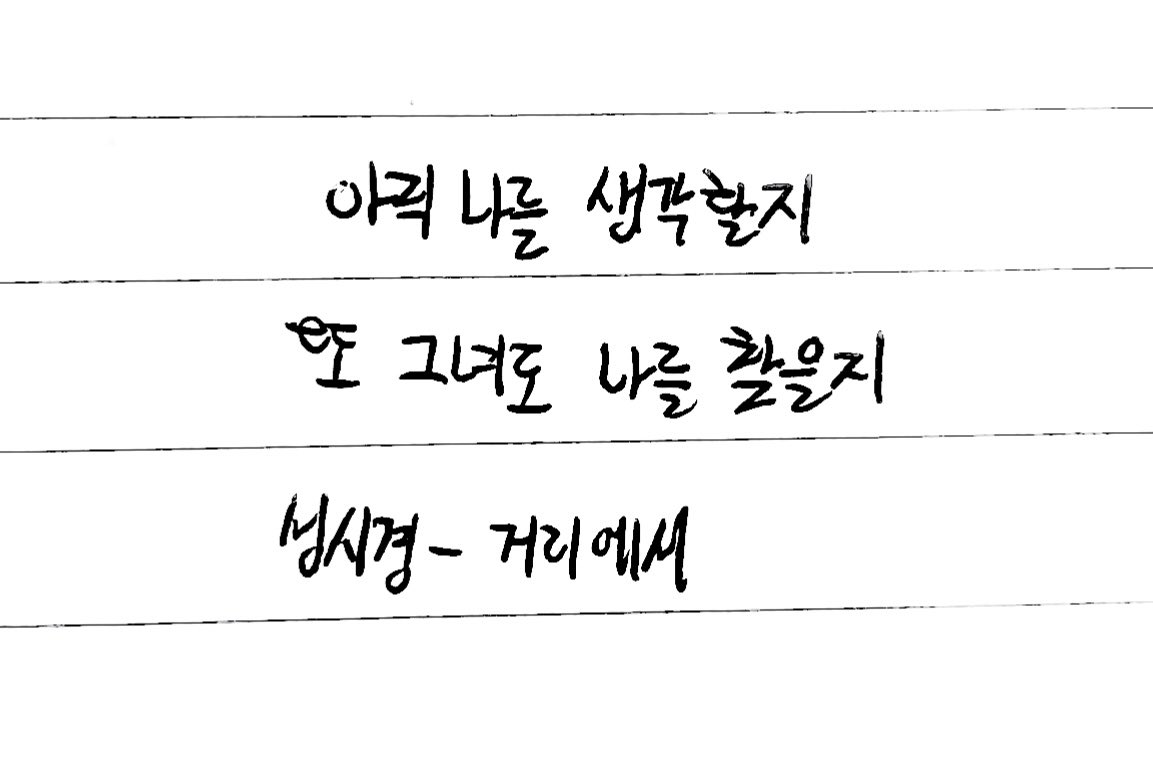 아직 나를 생각할지
또 그녀도 나를 찾을지
성시경 - 거리에서